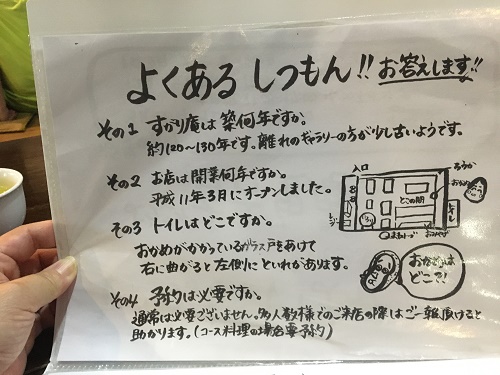 よくある しつもん!! お答えします!!
その1 すがり庵は築何年ですか。
約120~130年です。離れのギャラリーの方が少し古いようです。
その2 お店は開業何年ですか。
平成11年3月にオープンしました。
入口
とこの間
その3 トイレはどこですか。
おかめがかかっているガラス戸をあけて
右に曲がると左側にといれがあります。
おかめは
どこ?!
その4 予約は必要ですか。
通常は必要ございません。多人数様でのご来店の際はご一報頂けると
助かります。(コース料理の場合要予約)